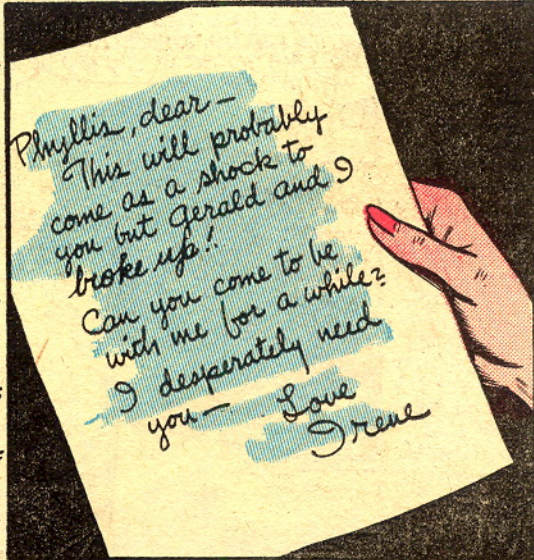 Phyllis, dear—
This will probably
come as a shock to
you but Gerald and I
broke up!!
Can you come to be
with me for a while?
I desperately need
you— Love
Irene